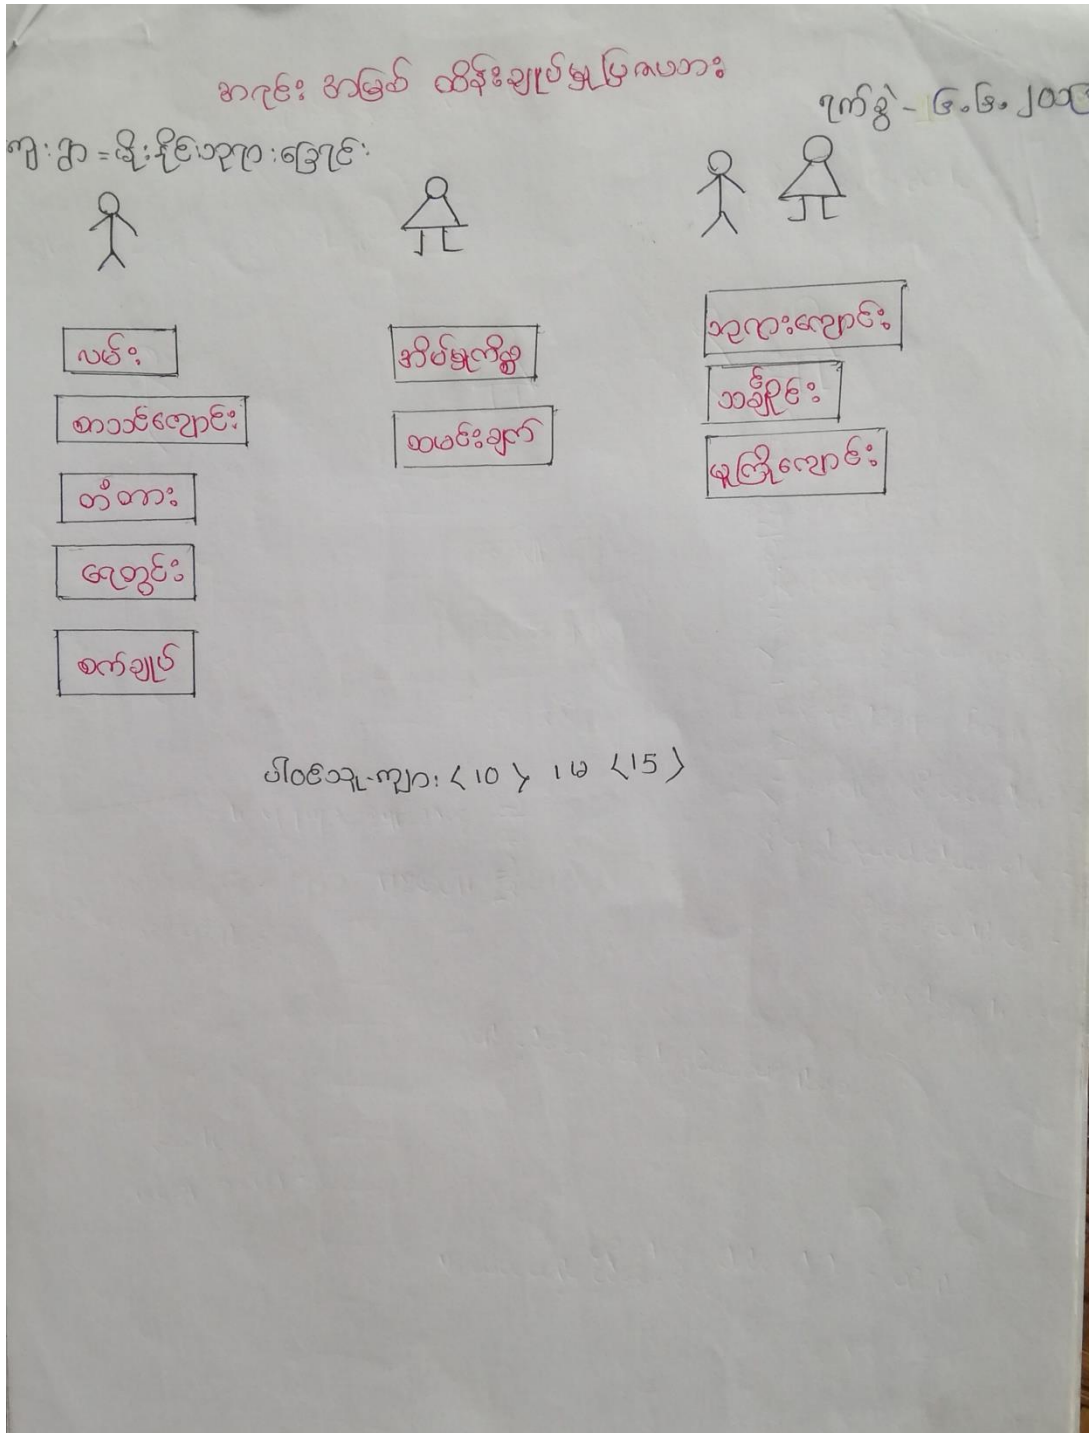 အရင်း အမြစ် ထိန်းချုပ်မှုပြဇယား
ရက်စွဲ - ၆.၆. ၂၀၁၆
ကျေးရွာ =
လမ်း
စာသင်ကျောင်း
တံတား
ရေတွင်း
စက်ချုပ်
အိမ်မှုကိစ္စ
ထမင်းချက်
ဘုရားကျောင်း
သင်္ချိုင်း
မူကြိုကျောင်း
ပါဝင်သူ-ကျား <10> ၊ မ <15>